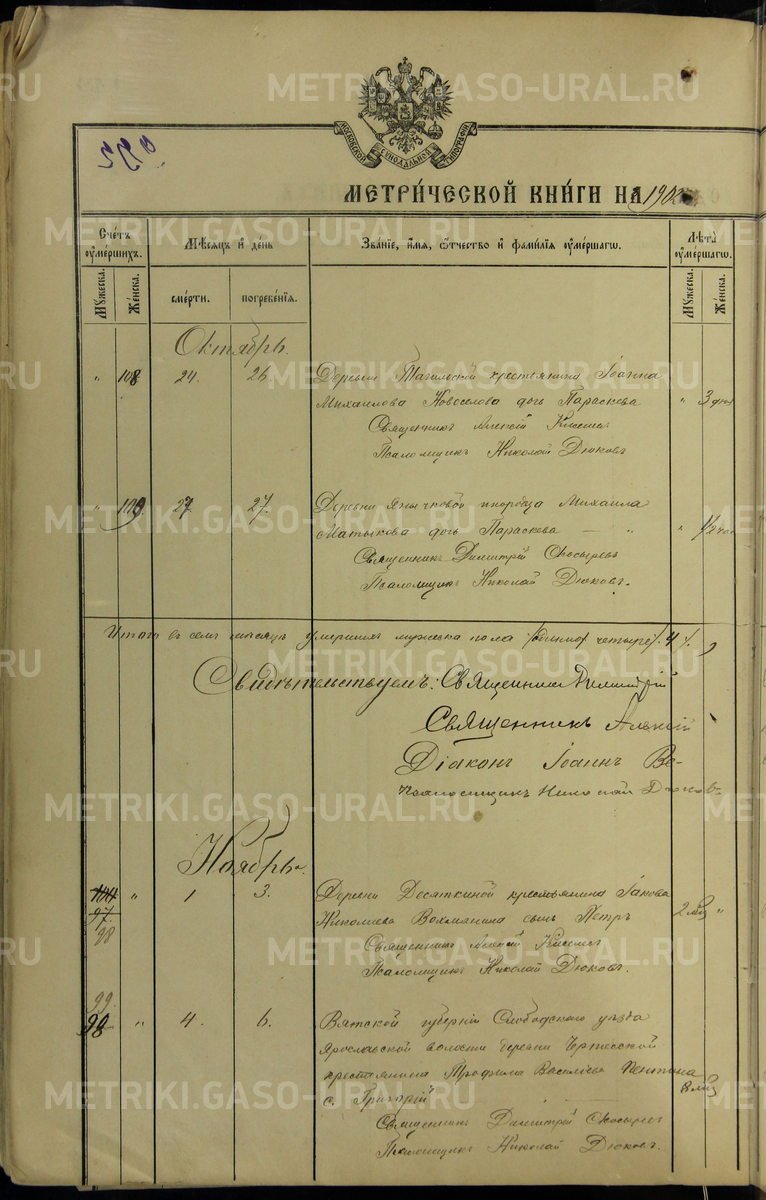 МОСКОВСКОЙ СѴНОДАЛЬНОЙ ТИПОГРАФІИ
МЕТРИ́ЧЕСКОЙ КНИ́ГИ НА 1902
Сче́тъ оуме́ршихъ.
Мѣ́сяцъ и҆ де́нь
Зва́нїе, и҆́мя, ѻ҆́тчество и҆ фами́лїя оуме́ршагѡ.
Лѣта̀ оуме́ршагѡ.
Мꙋжеска.
Же́нска.
сме́рти.
погребе́нїѧ.
Мꙋжеска.
Же́нска.
Октябрь.
" 108 24. 26. Деревни Тагильской крестьянина Іоанна
Михаилова Новоселова дочь Параскева " 3 дня
Священникъ Алексій
Псаломщикъ Николай Дюковъ
" 109 27 27. Деревни Янычковой инородца Михаила
Матыкова дочь Параскева — " "
Священникъ Димитрій Окосыревъ
Псаломщикъ Николай Дюковъ.
Итого въ семъ мѣсяцѣ умершихъ мужеска пола четыре 4
Свидѣтельствуемъ: Священникъ Димитрій
Священникъ Алексій
Діаконъ Іоаннъ
Псаломщикъ Николай Дюковъ
Ноябрь.
97 98 " 1 3. Деревни Десяткиной крестьянина Іакова
Николаева Вохмянина сынъ Петръ 2 мѣс "
Священникъ Алексій
Псаломщикъ Николай Дюковъ.
99. 98 " 4. 6. Вятской губерніи Слободского уѣзда
Ярославской волости деревни
крестьянина Трофима Василіева
с. Григорій 8 мѣс
Священникъ Димитрій Окосыревъ
Псаломщикъ Николай Дюковъ.
METRIKI.GASO-URAL.RU